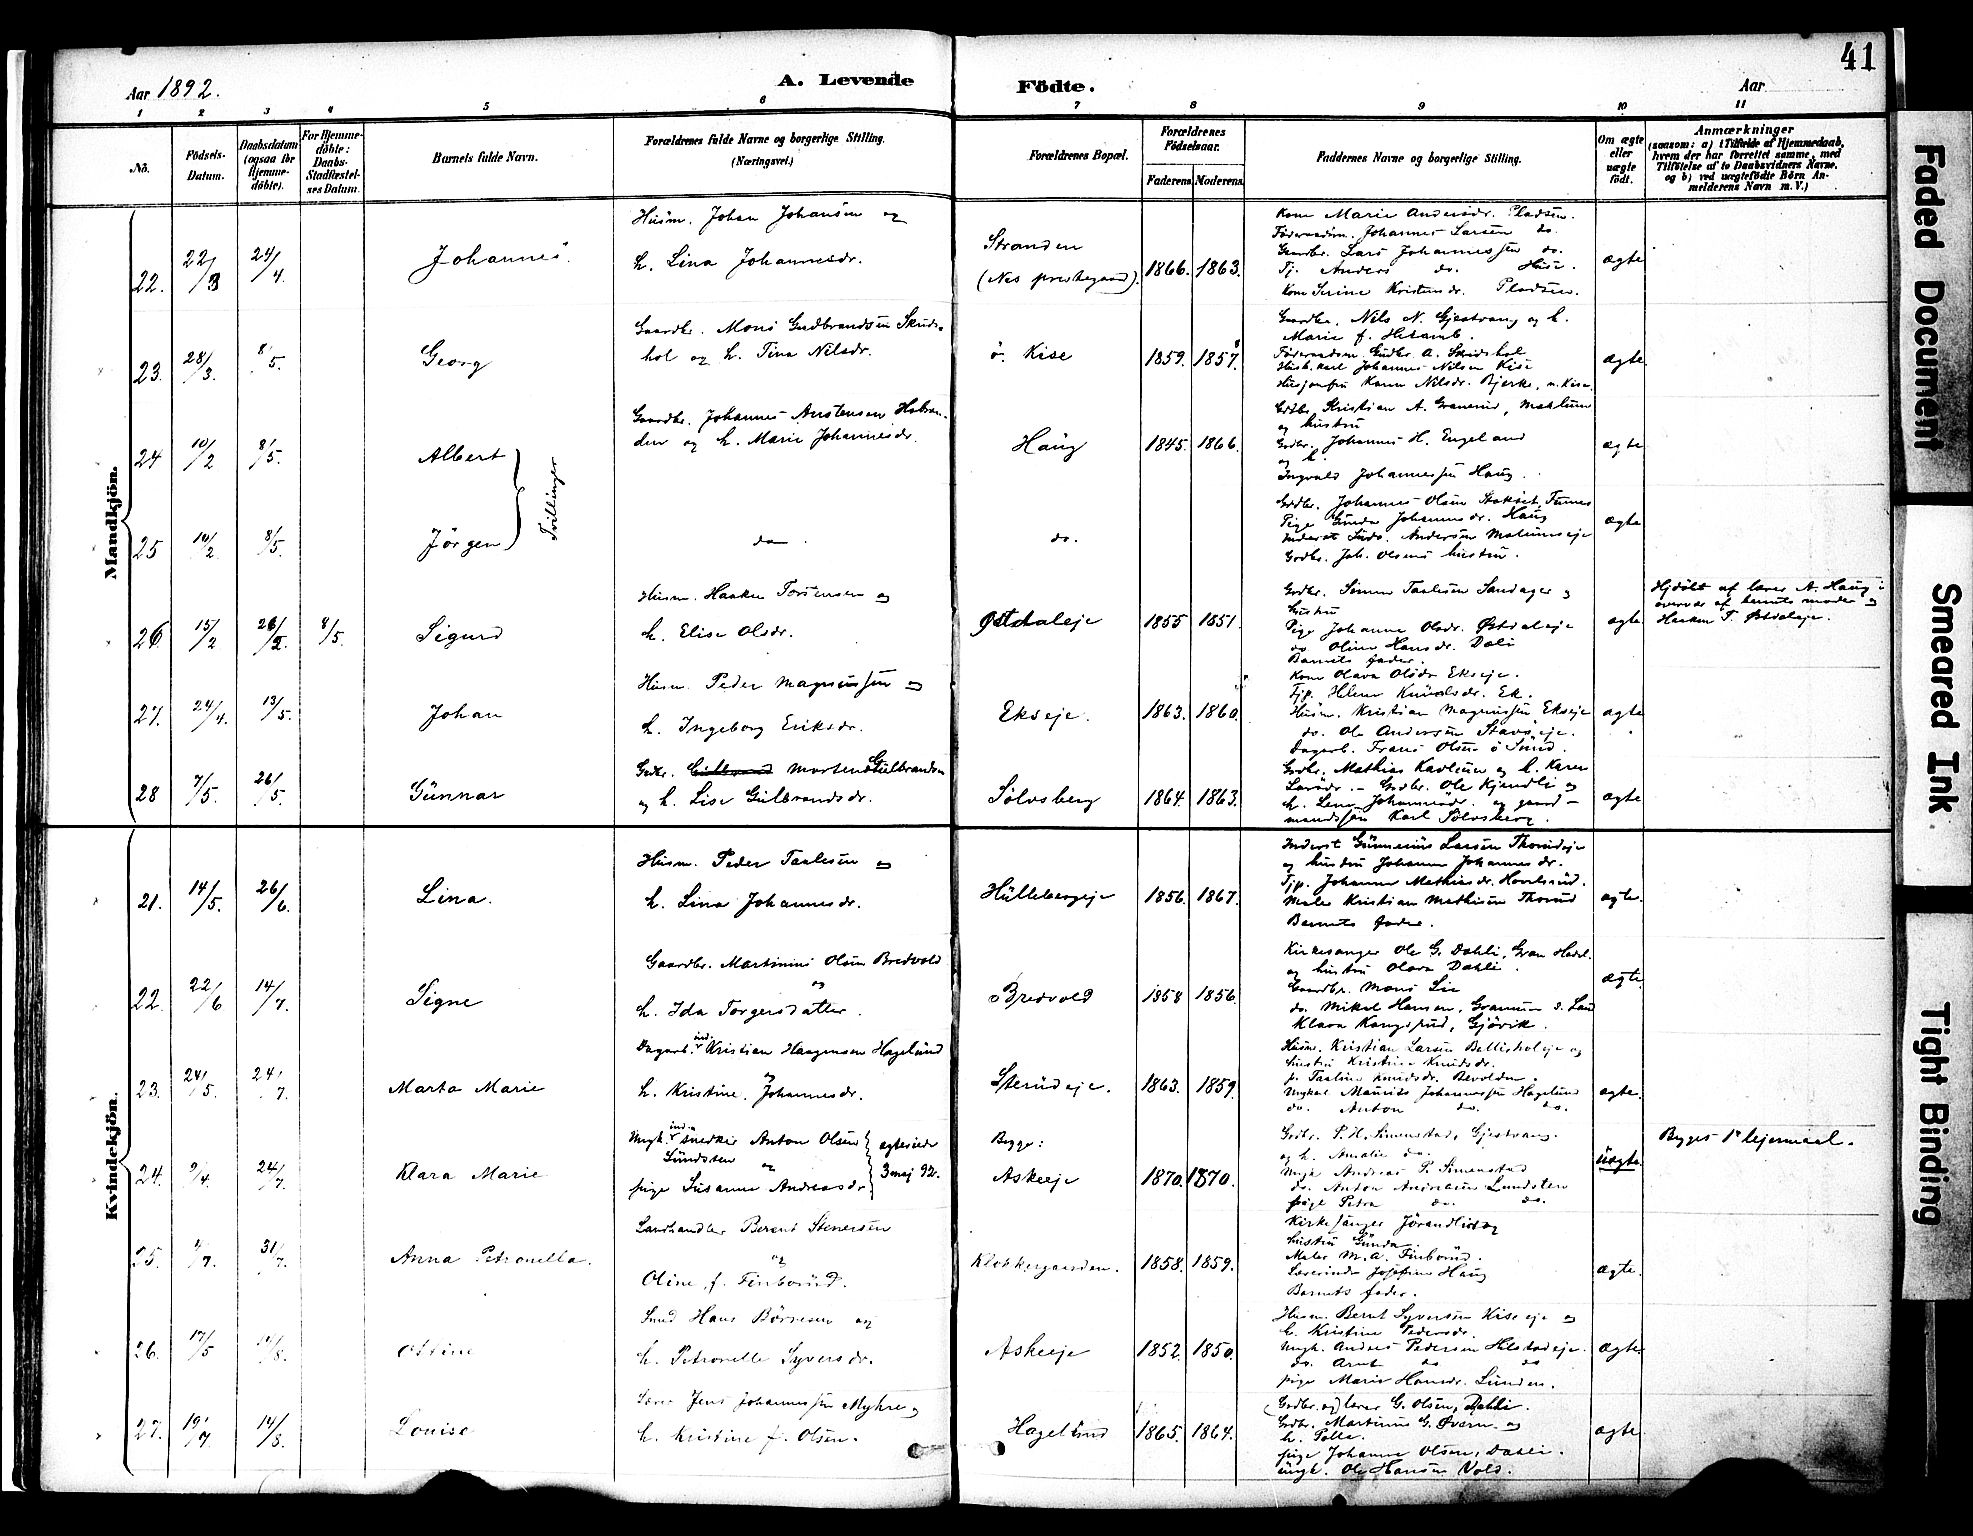 41
Aar 1892.
A. Levende
Födte.
Aar
1 2 3 4 5 6 7 8 9 10 11
Nö.
Födsels-
Datum.
Daabsdatum
(ogsaa for
Hjemme-
döbte).
For Hjemme-
döbte:
Daabs-
Stadfæstel-
ses Datum.
Barnets fulde Navn.
Forældrenes fulde Navne og borgerlige Stilling.
(Næringsvei.)
Forældrenes Bopæl.
Forældrenes
Födselsaar.
Faderens.
Moderens.
Faddernes Navne og borgerlige Stilling.
Om ægte
eller
uægte
födt.
Anmærkninger
(saasom: a) i Tilfælde af Hjemmedaab,
hvem der har forrettet samme, med
Tilföielse af to Daabsvidners Navne,
og b) ved uægtefödte Börn An-
melderens Navn m. V.)
Mandkjön.
22. 22/3 24/4 Johannes.
Husm. Johan Johansen og
h. Lina Johannesdr.
Stranden
(Nes prestegaard).
1866. 1863.
Kone Marie Andersdr. Pladsen.
Föderaadsm. Johannes Larsen do.
Gaardbr. Lars Johannessen do.
Tj. Anders do. Hüse.
Kone Serine Kristensdr. Pladsen.
ægte
23. 28/3. 8/5. Georg
Gaardbr. Mons Gudbrandsen Skuds-
hol og h. Tina Nilsdr.
ö. Kise
1859. 1857.
Gaardbr. Nils N. Gjestvang og h.
Marie f. Helsamb.
Föderaadsm. Gudbr. A. Skudshol
Johannes Nilsen Kise
Karen Nilsdr. Bjerke, n. Kise.
ægte
24 10/2 8/5. Albert
Tvillinger
Gaardbr. Johannes Austensen
den og h. Marie Johannesdr.
Haug
1845. 1866.
Gdbr. Kristian A. Granerud, Mæhlum
og hustru
Gdbr. Johannes H. Engeland
og h.
Ingvald Johannessen Haug.
ægte
25 10/2 8/5. Jörgen
do
do.
Gdbr. Johannes Olsen Stokset,
Pige Gunda Johannesdr. Haug
Inderst Andersen
Gdbr. Joh. Olsens hustru.
ægte
26 15/2 26/2. 8/5 Sigurd
Husm. Haaken Torstensen og
h. Elise Olsdr.
Østdaleje
1855 1851.
Grdbr. Simen Taalesen Sandager og
hustru
Pige Johanne Olsdr. Østdaleje
do Oline Hansdr. Dæli
Barnets fader.
ægte
Hjdöbt af lærer A. Haug i
overvær af barnets moder og
Haaken T. Østdaleje.
27. 24/4. 13/5. Johan
Husm. Peder Magnussen og
h. Ingeborg Eriksdr.
Ekseje.
1863. 1860.
Kone Olava Olsdr Ekseje.
Tjp. Helene Knudsdr. Ek.
Husm. Kristian Magnussen Ekseje
do. Ole Andersen Stavseje.
Dagarb. Frans Olsen ö Sund.
ægte
28 7/5. 26/5. Günnar
Grdbr. Morten Gulbrandsen
og h. Lise Gulbrandsdr.
Sölvsberg
1864. 1863.
Grdbr. Mathias Kavlum og h. Karen
Larsdr. - Grdbr. Ole Kjendli og
h. Lena Johannesdr. og gaard-
mandssön Karl Sölvsberg.
ægte
Kvindekjön.
21. 14/5. 26/6. Lina.
Husm. Peder Taalesen og
h. Lina Johannesdr.
Hülleberyeje
1856. 1867.
Inderst Gunnerius Larsen Thorudeje
og hustru Johanne Johannesdr.
Tjp. Johanne Mathiasdr. Hovelsrud.
Maler Kristian Mathisen Thorud
Barnets fader.
ægte.
22. 22/6 14/7. Signe
Gaardbr. Martinius Olsen Bredvold
og
h. Ida Torgersdatter.
Bredvold
1858 1856.
Kirkesanger Ole G. Dahli, Gran Hadel.
og hustru Olava Dahli.
Gaardbr. Mons Lie
do. Mikal Hansen, Granum S. Land
Klara Kongsrud, Gjövik.
ægte.
23. 24/5. 24/7. Marta Marie
Dagarb. ind. Kristian Haagensen Hagelund
og
h. Kristine Johannesdr.
Sterudeje.
1863. 1859.
Husm. Kristian Larsen Ballisholeje og
hustru Kristine Knudsdr.
p. Taaline Knudsdr. Bevolden
Ungkal Maurits Johannessen Hagelund
do. Anton do. do.
ægte.
24. 9/4. 24/7. Klara Marie
Ungk. ind. snedker Anton Olsen
Lundsten
og
pige Susanne Andreasdr
ægteviede
3 maj 92.
Begge:
Askeeje
1870. 1870.
Grdbr. P. H. Simenstad, Gjestvang.
og h. Amalie do.
Ungk Andreas P. Simenstad
do. Anton Andreasen Lundsten
pige Petra do. do.
üægte.
Begges 1ste lejermaal.
25. 31/7. Anna Petronella.
Landhandler Berent Stenersen
og
Oline f. Finborud.
Klokkergaarden.
1858. 1859.
Kirkesanger Jörandlid og
hustru Gunda.
Maler M. A. Finborud.
Lærerinde Josefine Haug
Barnets fader.
ægte.
26. 17/5 Ottine
Smed Hans Börresen og
h. Petronelle Syversdr.
Askeeje
1852. 1850.
Husm. Bernt Syversen Kiseeje og
h. Kristine Pedersdr.
Ungk. Anders Pedersen Helstadeje.
do. Arnt do do
pige Marie Hansdr. Lunden.
ægte.
27. 19/7. 14/8. Louise
Lærer Jens Johannessen Myhre og
h. Kristine f. Olsen.
Hagelund
1865. 1864.
Grdbr. og lærer G. Olsen, Dahli.
Grdbr. Martinus G. Overn og
h. Pella.
pige Johanne Olsen, Dahli.
ungk. Ole Hansen Vold.
ægte
Faded Document
Smeared Ink
Tight Binding